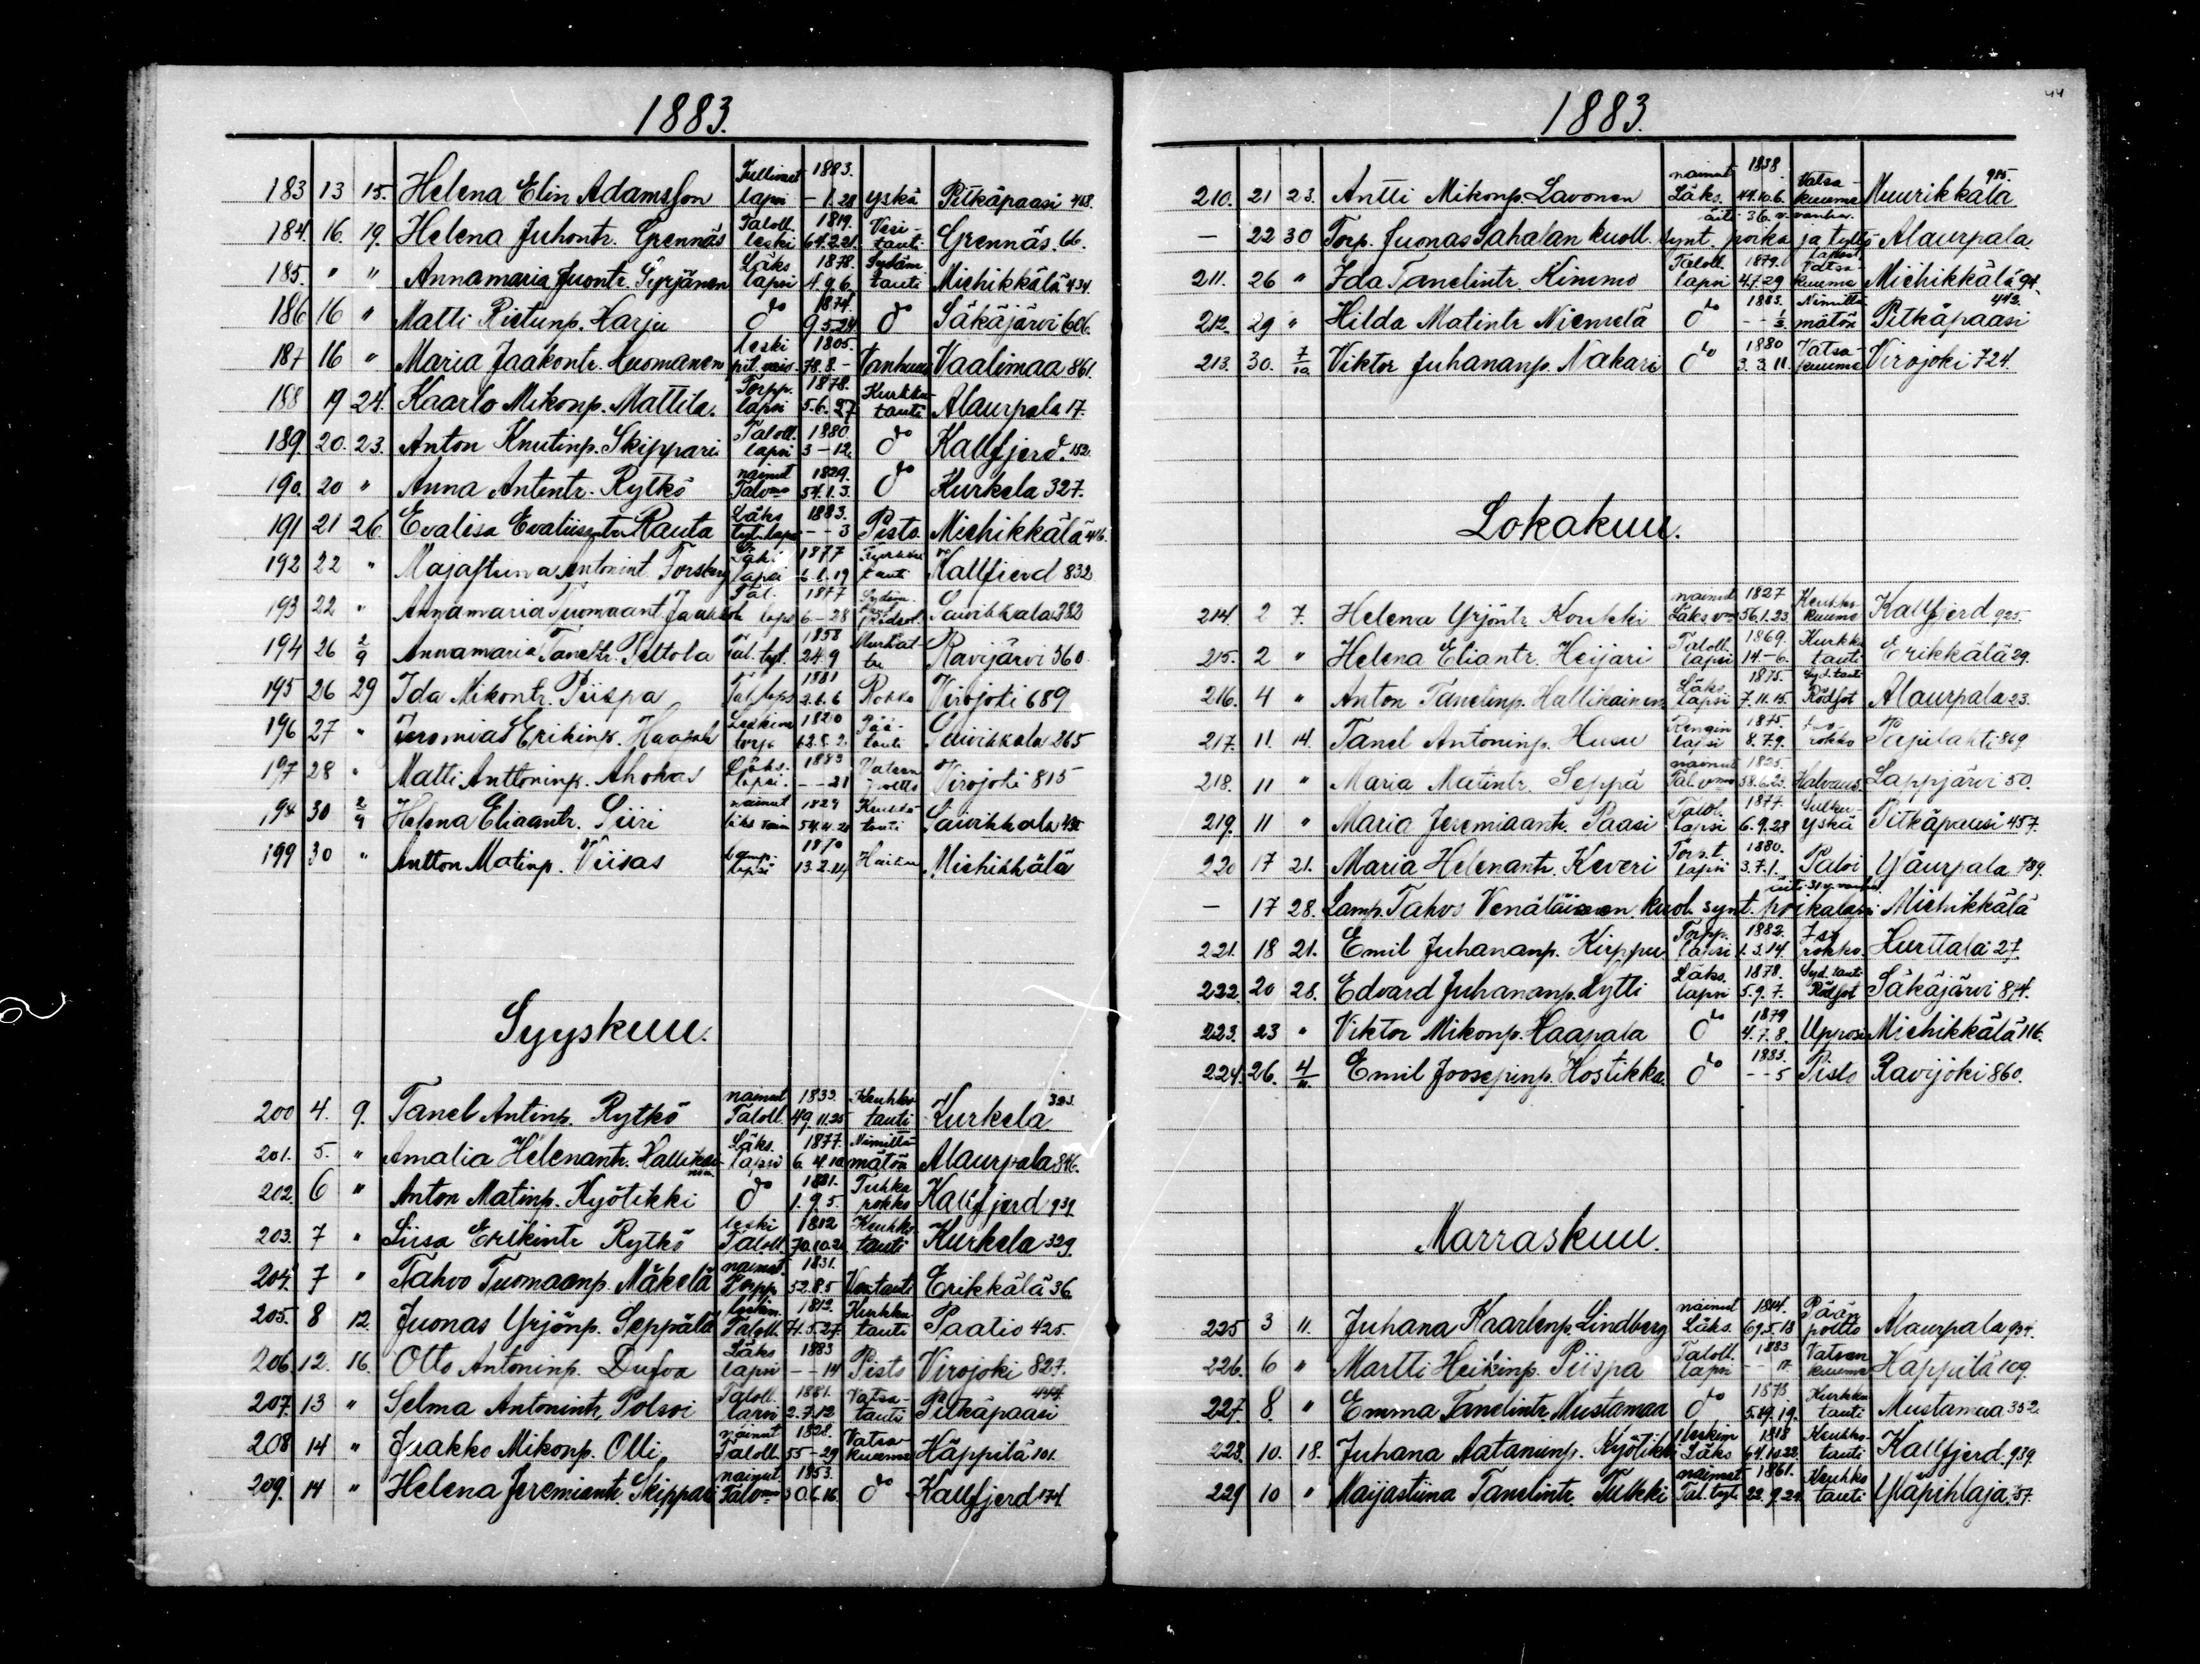 1883.
183 13 15. Helena Elin Adamsson lapsi 1883. – 1.28 yskä Pitkäpaasi 468.
184. 16. 19. Helena Juhontr. Grennäs Taloll. leski 1819. 64.2.21. Vesitauti Grennäs. 66.
185. " " Annamaria Juontr. Yrjänen Läks. lapsi 1878. 4.9.6. Sydäntauti Miehikkälä 434.
186 16 " Matti Rietunp. Harju do 1874. 9.5.24 do Säkäjärvi 606.
187 16 " Maria Jaakontr. Huomanen leski 1805. 78.8.– Vanhuus Vaalimaa 861.
188 19 24. Kaarlo Mikonp. Mattila. Torpp. lapsi 1878. 5.6.27 Kurkkutauti Alaurpala 17.
189. 20. 23. Anton Knutinp. Skippari Taloll. lapsi 1880. 3–12. do Kallfjerd. 152.
190. 20 " Anna Antintr. Rytkö nainut Talvmo 1829. 54.1.3. do Kurkela 327.
191 21 26 Evalisa Evaliisantr. Rauta Läks tyt. laps 1883. – – 3 Pisto Miehikkälä 416.
192 22 " Majastiina Antonint. Forsberg lapsi 1877 6.1.19 Kurkkutauti Kallfjerd 832
193 22 " Annamaria Tuomaant. Jaakkola Tal. laps 1877 6–28 Sydäntauti Saivikkala 282
194 26 2/9 Annamaria Taneltr. Peltola Tal. tyt. 1858 24.9 Ravijärvi 360.
195 26 29 Ida Mikontr. Piispa Tal laps 1881 2.1.6 Rokko Virojoki 689
196 27 " Jeremias Erikinp. Haapala Leskim torp. 1820 62.5.2. Päätauti Saivikkala 265
197 28 " Matti Anttoninp. Ahokas Läks. lapsi. 1883 – – 21 Vatsan poltto Virojoki 815
194 30 2/9 Helena Eliaantr. Siiri nainut 1829 54.4.21 Keuhkotauti Saivikkala
199 30 " Antton Matinp. Viisas Lamp. lapsi 1870 13.2.14 Miehikkälä
Syyskuu.
200 4. 9. Tanel Antinp. Rytkö nainut Taloll. 1833. 49.11.25 Keuhkotauti Kurkela 323.
201. 5. " Amalia Helenantr. Hallikainen Läks. lapsi 1877. 6.4.10 Nimittämätön Alaurpala 846.
202. 6 " Anton Matinp. Kyötikki do 1881. 1.9.5. Tuhkarokko Kallfjerd 939.
203. 7 " Liisa Erikintr Rytkö leski Taloll 1812 70.10.21 Keuhkotauti Kurkela 329.
204. 7 " Tahvo Tuomaanp Mäkelä nainut. Torpp 1831. 52.8.5 Ven.tauti Erikkälä 36.
205. 8 12. Juonas Yrjönp. Seppälä leskim. Taloll. 1812. 71.5.27. Kurkkutauti Paatio 425.
206. 12. 16. Otto Antoninp. Dufva Läks lapsi 1883 – – 14 Pisto Virojoki 827.
207. 13 " Selma Antonintr. Polsoi Taloll lapsi 1881. 2.7.12 Vatsatauti Pitkäpaasi 444.
208 14 " Jaakko Mikonp. Olli nainut Taloll. 1828. 55–29 Vatsakuume Häppilä 101.
209. 14 " Helena Jeremiantr. Skippari nainut. Talvmo 1853. 30.6.16. do Kallfjerd 174.
44
1883.
210. 21 23. Antti Mikonp. Lavonen nainut Läks. 1838. 44.10.6. Vatsakuume Muurikkala 985.
– 22 30 Torp. Juonas Sahalan kuoll. synt. poika ja tyttö lapset äiti 36 v. vanha. Alaurpala
211. 26 " Ida Tanelintr. Kimmo Taloll. lapsi 1879. 4.7.29 Vatsakuume Miehikkälä 94.
212. 29 " Hilda Matintr Niemelä do 1883. – – 1/3 Nimittämätön Pitkäpaasi 442.
213. 30. 7/10 Viktor Juhananp. Nakari do 1880 3.3.11. Vatsakuume Virojoki 724.
Lokakuu.
214. 2 7. Helena Yrjöntr Koukki nainut Läks vmo 1827 56.1.23. Keuhkokuume Kallfjerd 925.
215. 2 " Helena Eliantr. Heijari Taloll. lapsi 1869. 14–6. Kurkkutauti Erikkälä 29.
216. 4 " Anton Tanelinp. Hallikainen Läks. lapsi 1875. 7.11.15. Syd. tauti Rödsot Alaurpala 23.
217. 11. 14. Tanel Antoninp. Husu Rengin lapsi 1875. 8.7.9. rokko Tepilahti 869
218. 11 " Maria Matintr. Seppä nainut Tal.vmo 1825. 58.6.23. Halvaus. Lappjärvi 50.
219. 11 " Maria Jeremiaantr. Paasi Talol. lapsi 1877. 6.9.28 Yskä Pitkäpaasi 457.
220 17 21. Maria Helenantr. Keveri Torp.t. lapsi 1880. 3.7.1. Paloi Yläurpala 789.
– 17 28. Lamp. Tahvo Venäläisen kuol. synt. poikalapsi äiti 31 v. vanha. Miehikkälä
221. 18 21. Emil Juhananp. Kirppu Torpp. lapsi 1882. 1.3.14. Iso rokko. Hurttala 27.
222. 20 28. Edvard Juhananp. Lytti Läks. lapsi 1878. 5.9.7. Syd. tauti Rödsot Säkäjärvi 874.
223. 23 " Viktor Mikonp. Haapala do 1879 4.7.8. Uprosi Miehikkälä 116.
224. 26. 4/11. Emil Joosepinp. Hostikka do 1883. – – 5 Pisto Ravijoki 860.
Marraskuu.
225 3 11. Juhana Kaarlenp Lindberg nainut Läks. 1814. 69.5.18 Päänpoltto Alaurpala 934.
226. 6 " Martti Heikinp. Piispa Taloll. lapsi 1883 – – 17 Vatsankuume Häppilä 109.
227 8. " Emma Tanelintr. Mustamaa do 1878 5.19.19. Kurkkutauti Mustamaa 352.
228. 10. 18. Juhana Aataminp. Kyötikki leskim Läks 1818 64.10.22. Keuhkotauti Kallfjerd. 939.
229 10 " Maijastiina Tanelintr. Tulkki nainut Tal. tyt. 1861. 22.9.24 Keuhkotauti Yläpihlaja. 57.